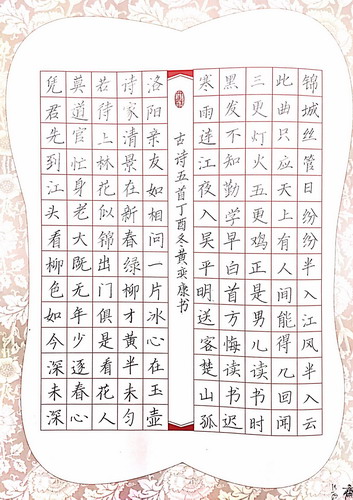 锦城丝管日纷纷半入江风半入云
此曲只应天上有人间能得几回闻
三更灯火五更鸡正是男儿读书时
黑发不知勤学早白首方悔读书迟
寒雨连江夜入吴平明送客楚山孤
古诗五首丁酉冬黄奕康书
洛阳亲友如相问一片冰心在玉壶
诗家清景在新春绿柳才黄半未匀
若待上林花似锦出门俱是看花人
莫道官忙身老大既无年少逐春心
凭君先到江头看柳色如今深未深